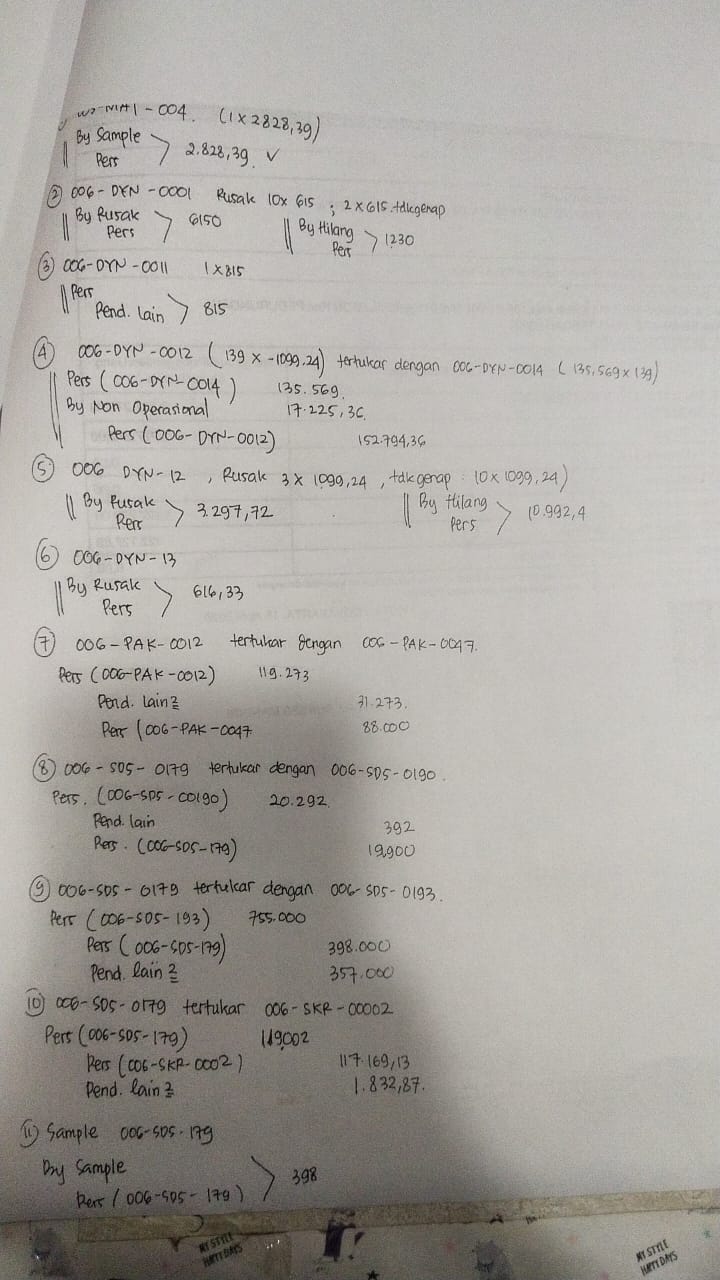 004. (1 x 2828,39)
By Sample
Pers > 2.828,39 ✓
② 006 - DYN - 0001 Rusak 10x 615 ; 2 x 615 tdkgenap
|| By Rusak
Pers > 6150 || By Hilang
Pers > 1230
③ 006-DYN-0011 1 x 815
|| Pers
Pend. lain > 815
④ 006-DYN-0012 (139 x -1099.24) tertukar dengan 006-DYN-0014 (135,569 x 139)
Pers (006-DYN-0014) 135.569.
By Non Operasional 17.225,36.
Pers (006-DYN-0012) 152.794,36
⑤ 006 DYN-12, Rusak 3 x 1099,24, tdkgenap : 10 x 1099,24)
|| By Rusak
Pers > 3.297,72 || By Hilang
Pers > 10.992,4
⑥ 006-DYN-13
|| By Rusak
Pers > 616,33
⑦ 006-PAK-0012 tertukar dengan 006-PAK-0047.
Pers (006-PAK-0012) 119.273
Pend. lain2 31.273.
Pers (006-PAK-0047 88.000
⑧ 006-SDS-0179 tertukar dengan 006-SDS-0190.
Pers. (006-SDS-00190) 20.292.
Pend. lain 392
Pers. (006-SDS-179) 19,900
⑨ 006-SDS-0179 tertukar dengan 006-SDS-0193.
Pers (006-SDS-193) 755.000
Pers (006-SDS-179) 398.000
Pend. lain2 357.000
⑩ 006-SDS-0179 tertukar 006-SKR-00002
Pers (006-SDS-179) 119.002
Pers (006-SKR-0002) 117.169,13
Pend. lain2 1.832,87.
⑪ Sample 006-SDS-179
By Sample
Pers (006-SDS-179) > 398
MY STYLE
HAPPY DAYS
MY STYLE
HAPPY DAYS